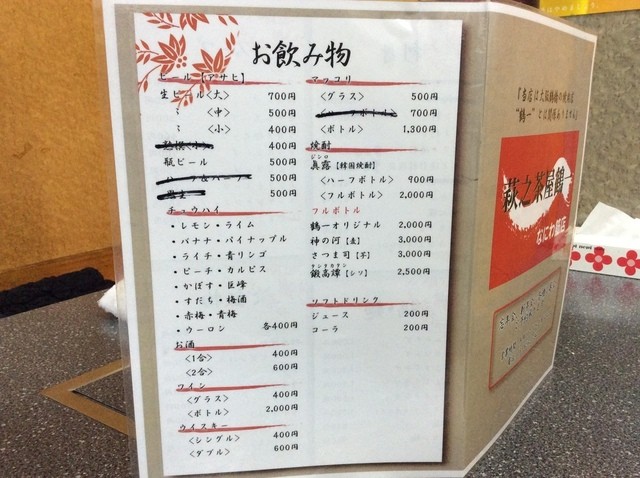 お飲み物
ビール【アサヒ】
生ビール<大> 700円
〃 <中> 500円
〃 <小> 400円
400円
瓶ビール 500円
500円
500円
チュウハイ
・レモン・ライム
・バナナ・パイナップル
・ライチ・青リンゴ
・ピーチ・カルピス
・かぼす・巨峰
・すだち・梅酒
・赤梅・青梅
・ウーロン 各400円
お酒
<1合> 400円
<2合> 600円
ワイン
<グラス> 400円
<ボトル> 2,000円
ウイスキー
<シングル> 400円
<ダブル> 600円
マッコリ
<グラス> 500円
<ハーフボトル> 700円
<ボトル> 1,300円
焼酎
ジンロ
真露【韓国焼酎】
<ハーフボトル> 900円
<フルボトル> 2,000円
フルボトル
鶴一オリジナル 2,000円
神の河【麦】 3,000円
さつま司【芋】 3,000円
タンタカタン
鍛高譚【シソ】 2,500円
ソフトドリンク
ジュース 200円
コーラ 200円
『当店は大阪鶴橋の焼肉店
"鶴一"とは関係ありません』
萩之茶屋鶴一
なにわ筋店